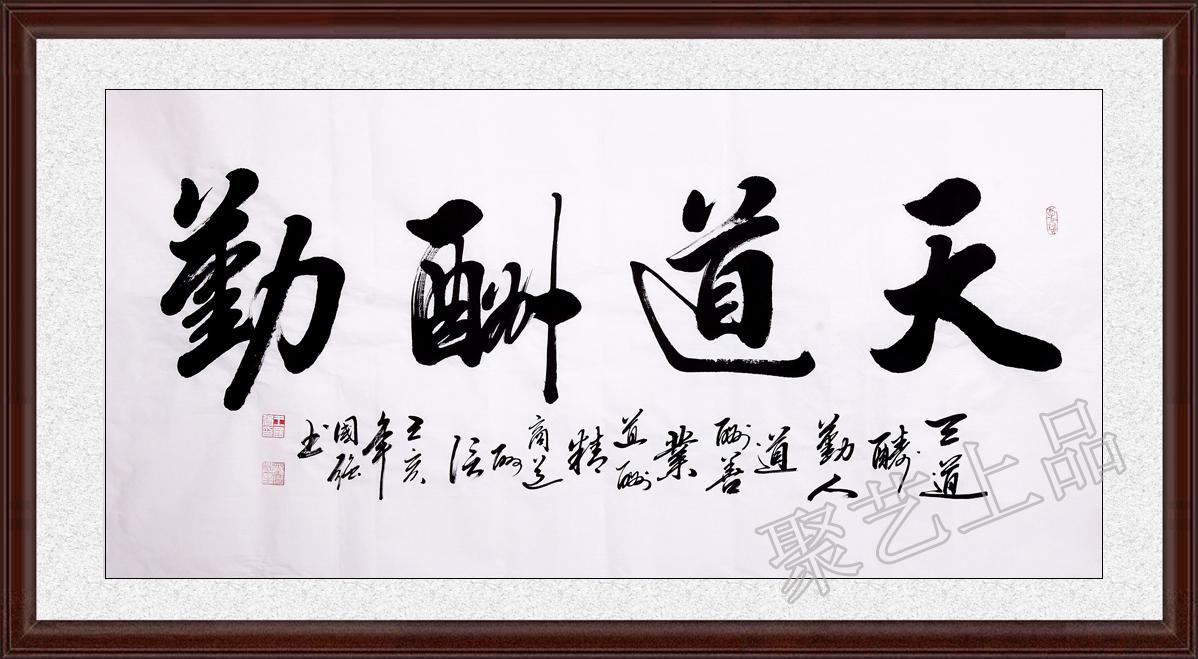 天道酬勤
天道
酬
勤人
道
酬善
業
道酬
精
商道
酬
信
己亥
年
國強
書
聚艺上品